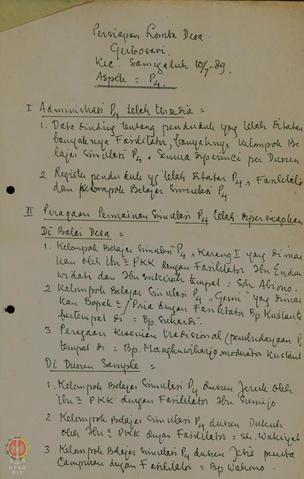 Persiapan Lomba Desa
Gerbosari.
Kec. Samigaluh 10/7-89.
Aspek = P4.
I Administrasi P4 telah tersedia =
1. Data dinding tentang penduduk yang telah ditatar
banyaknya Fasilitator, banyaknya Kelompok Be
lajar Simulasi P4. Semua diperinci per Dusun
2 Register penduduk yg telah ditatar P4, Fasilitator
dan Kelompok Belajar Simulasi P4
II Peragaan Permainan Simulasi P4 telah dipersiapkan
Di Balai Desa =
1. Kelompok Belajar Simulasi P4, Karang I yang dimai
kan oleh Ibu2 PKK dengan Fasilitator Ibu Endan
widati dan Ibu Sukirah tempat = Sdr. Abiono.
2. Kelompok Belajar Simulasi P4 yang dimai
kan Bapak2/Pria dengan Fasilitator Bp Kuslanto
bertempat di = Bp. Suhardi.
3 Peragaan Kesenian tradisional (pembudayaan P4
tempat di = Bp. Mangkuwiharjo, moderator Kuslant
Di Dusun Sample =
1. Kelompok Belajar Simulasi P4 dusun Jeruk oleh
Ibu2 PKK dengan Fasilitator Ibu Sumijo
2 Kelompok Belajar Simulasi P4 dusun Dukuh
oleh Ibu2 PKK dengan Fasilitator = Sdr. Wakiyah
3. Kelompok Belajar Simulasi P4 dusun Jetis
Campuran dengan Fasilitator = Bp Wahono.
DPAD
DIY